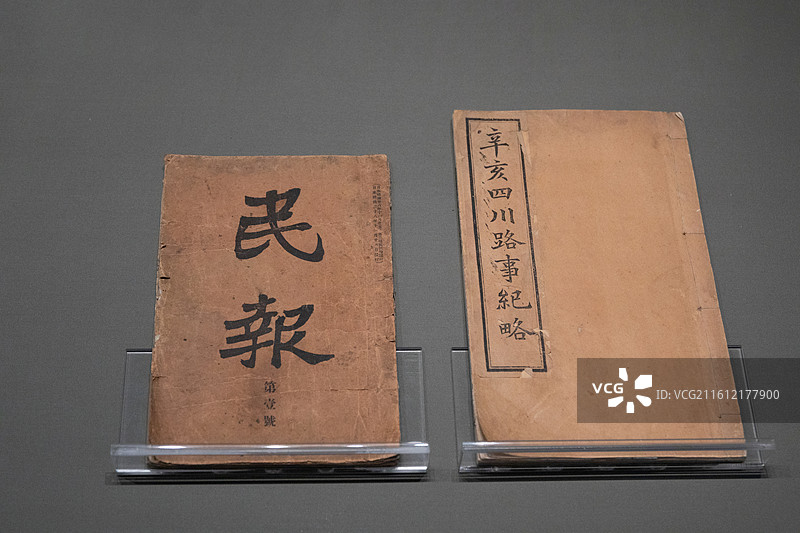 民報
第壹號
辛亥四川路事紀略
VCG
ID:VCG211612177900